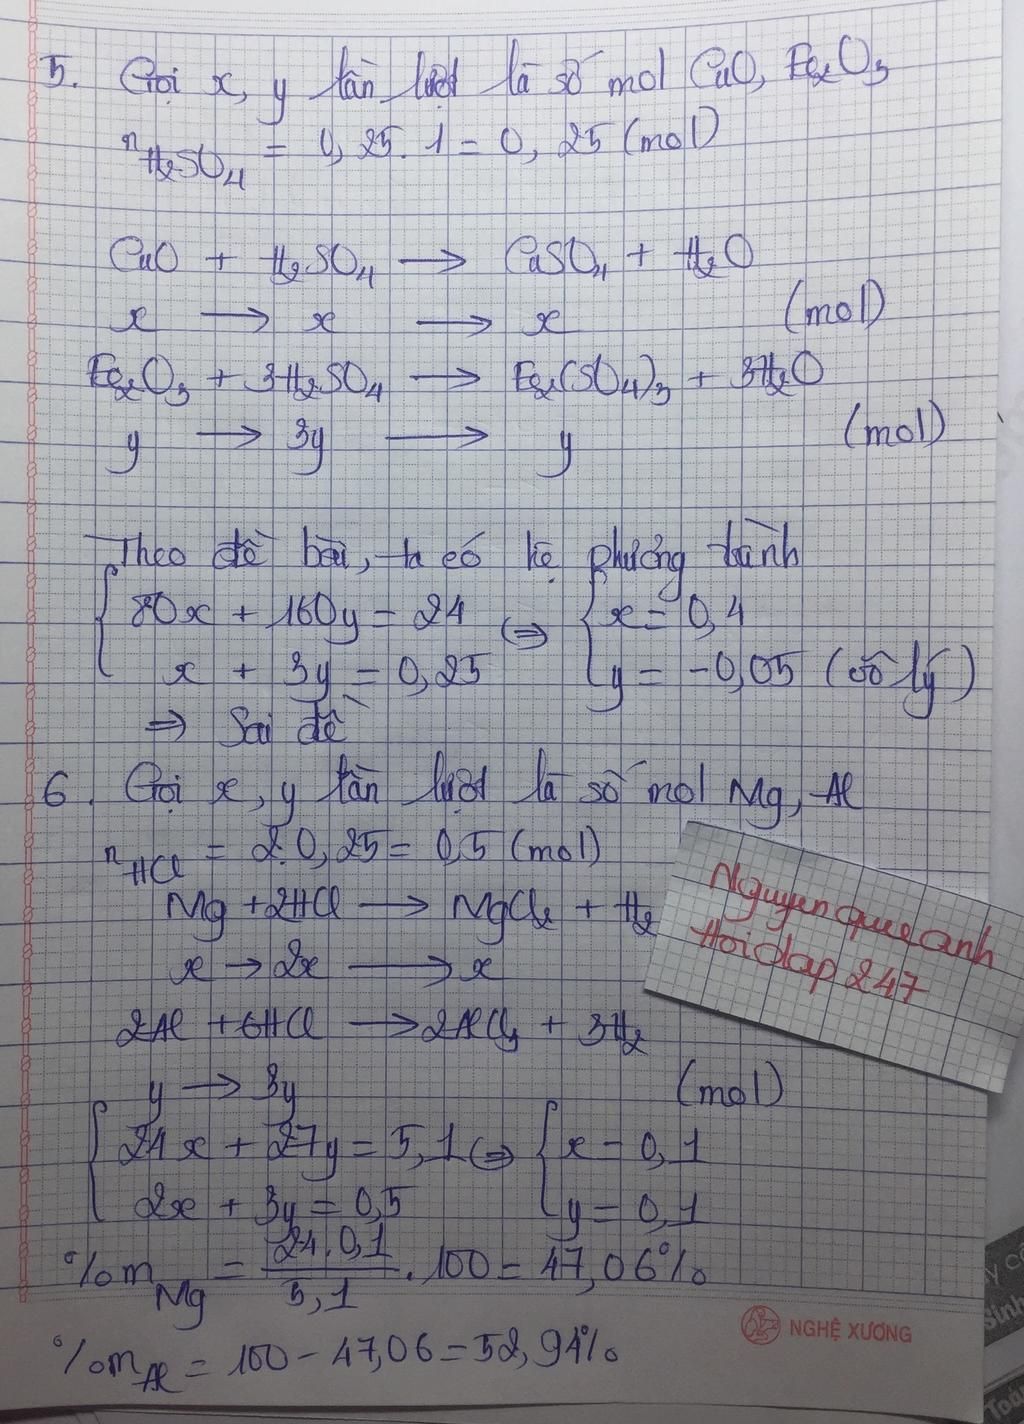 5. Gọi x, y lần lượt là số mol CuO, Fe2O3
nH2SO4 = 0,25.1 = 0,25 (mol)
CuO + H2SO4 → CuSO4 + H2O
x → x → x (mol)
Fe2O3 + 3H2SO4 → Fe2(SO4)3 + 3H2O
y → 3y → y (mol)
Theo đề bài, ta có hệ phương trình
{ 80x + 160y = 24 ⇔ { x = 0,4
x + 3y = 0,25 y = -0,05 (vô lý)
⇒ Sai đề
6. Gọi x, y lần lượt là số mol Mg, Al
nHCl = 2.0,25 = 0,5 (mol)
Mg + 2HCl → MgCl2 + H2
x → 2x → x
2Al + 6HCl → 2AlCl3 + 3H2
y → 3y (mol)
{ 24x + 27y = 5,1 ⇔ { x = 0,1
2x + 3y = 0,5 y = 0,1
%mMg = 24.0,1/5,1 . 100 = 47,06%
%mAl = 100 - 47,06 = 52,94%
Nguyenqueanh
Hoidap247
NGHỆ XƯƠNG